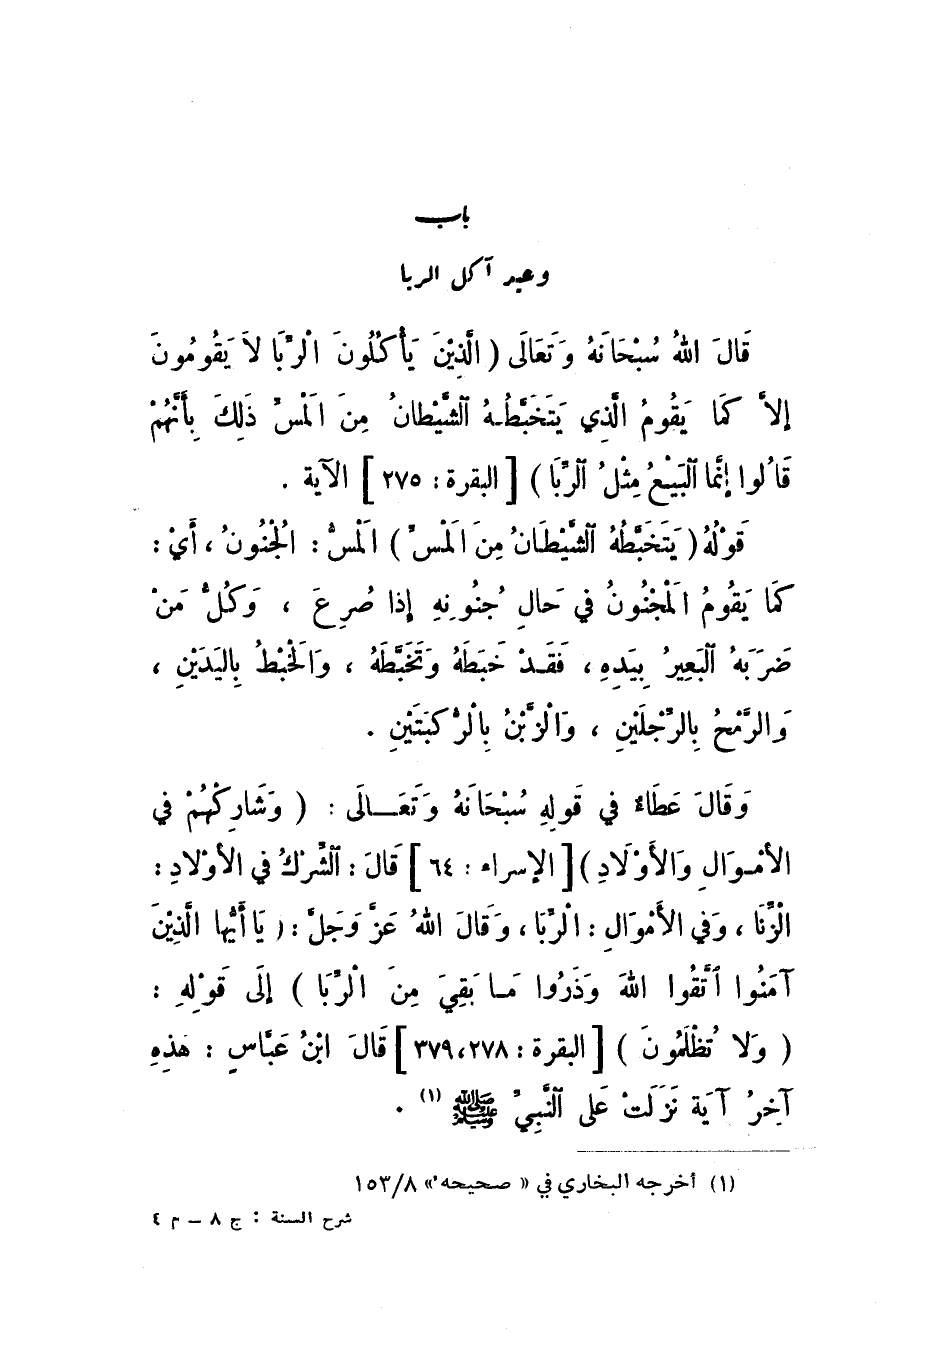 باب
وعيد آكل الربا
قَالَ اللهُ سُبْحَانَهُ وَتَعَالَى ( الَّذِيْنَ يَأْكُلُونَ الْرِّبَا لاَ يَقُومُونَ
إلاَّ كَمَا يَقُومُ الَّذِي يَتَخَبَّطُهُ الشَّيْطانُ مِنَ الَمْسِّ ذَلِكَ بِأَنَّهُمْ
قَالُوا إنَّما الْبَيْعُ مِثْلُ الرِّبَا ) [ البقرة : ٢٧٥ ] الآية .
قَوْلُهُ ( يَتَخَبَّطُهُ الشَّيْطَانُ مِنَ الَمْسِّ ) الَمْسُّ : الْجُنُونُ ، أَيْ :
كَمَا يَقُومُ الَمْجْنُونُ في حَالِ جُنُونِهِ إذا صُرِعَ ، وَكُلُّ مَنْ
ضَرَبَهُ الْبَعِيرُ بِيَدِهِ ، فَقَدْ خَبَطَهُ وَتَخَبَّطَهُ ، وَالْخَبْطُ بِاليَدَيْنِ ،
وَالرَّمْحُ بِالرِّجْلَيْنِ ، وَالْزَّبْنُ بِالْرُّكْبَتَيْنِ .
وَقَالَ عَطَاءٌ في قَولِهِ سُبْحَانَهُ وَتَعَالَى : ( وَشَارِكْهُمْ في
الأمْوَالِ وَالأَوْلَادِ ) [ الإسراء : ٦٤ ] قَالَ : الشِّرْكُ في الأَوْلادِ :
الْزِّنَا ، وَفي الأَمْوَالِ : الْرِّبَا ، وَقَالَ اللهُ عَزَّ وَجَلَّ : ( يَا أَيُّها الَّذِيْنَ
آمَنُوا اتَّقُوا اللهَ وَذَرُوا مَا بَقِيَ مِنَ الْرِّبَا ) إلَى قَوْلِهِ :
( وَلا تُظْلَمُونَ ) [ البقرة : ٢٧٨،٣٧٩ ] قَالَ ابْنُ عَبَّاسٍ : هَذِهِ
آخِرُ آيَة نَزَلَتْ عَلَى النَّبِيِّ ﷺ (١) .
(١) أخرجه البخاري في « صحيحه » ١٥٣/٨
شرح السنة : ج ٨ – م ٤